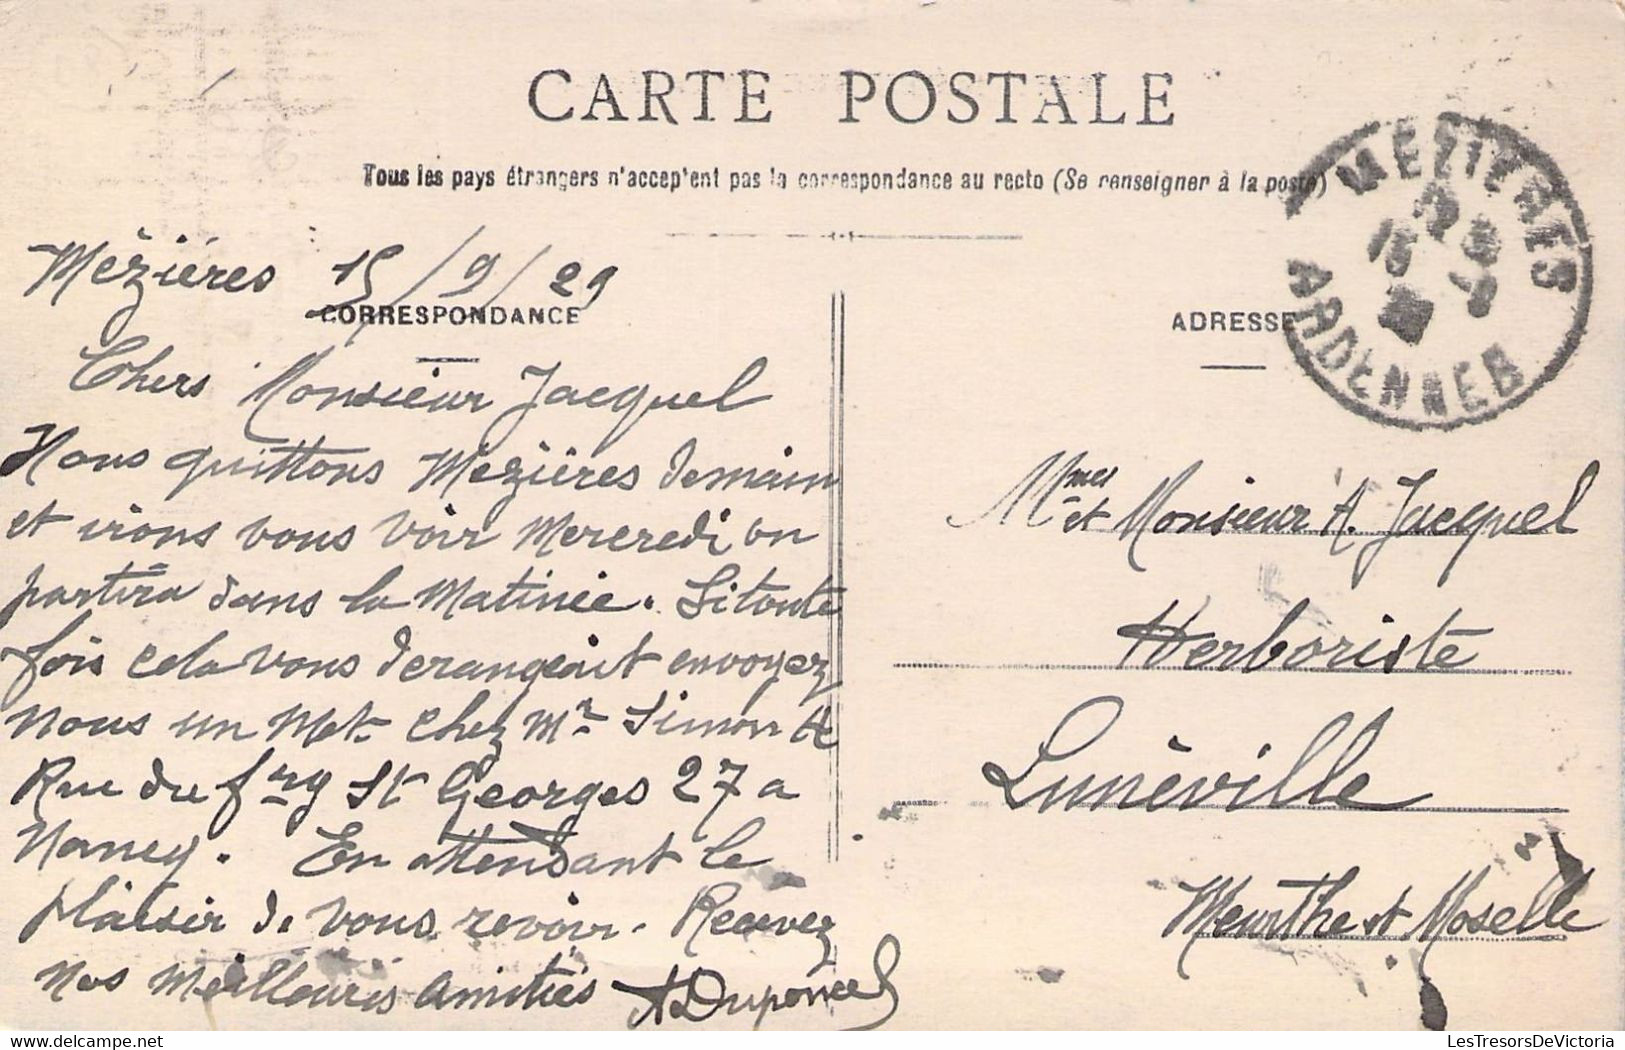 CARTE POSTALE
Tous les pays étrangers n'acceptent pas la correspondance au recto (Se renseigner à la poste)
MEZIERES
ARDENNES
Mézières 15/9/29
CORRESPONDANCE
Chers Monsieur Jacquel
Nous quittons Mezières demain
et irons vous voir Mercredi on
partira dans la Matinée. Si toute
fois cela vous derangeait envoyez
nous un Mot chez Mr Simon A
Rue du frg St Georges 27 a
Nancy. En attendant le
plaisir de vous revoir. Recevez
nos meilleuris amitiés A Duponcel
ADRESSE
Mmes et Monsieur A. Jacquel
Herboriste
Lunéville
Meurthe et Moselle
LesTresorsDeVictoria